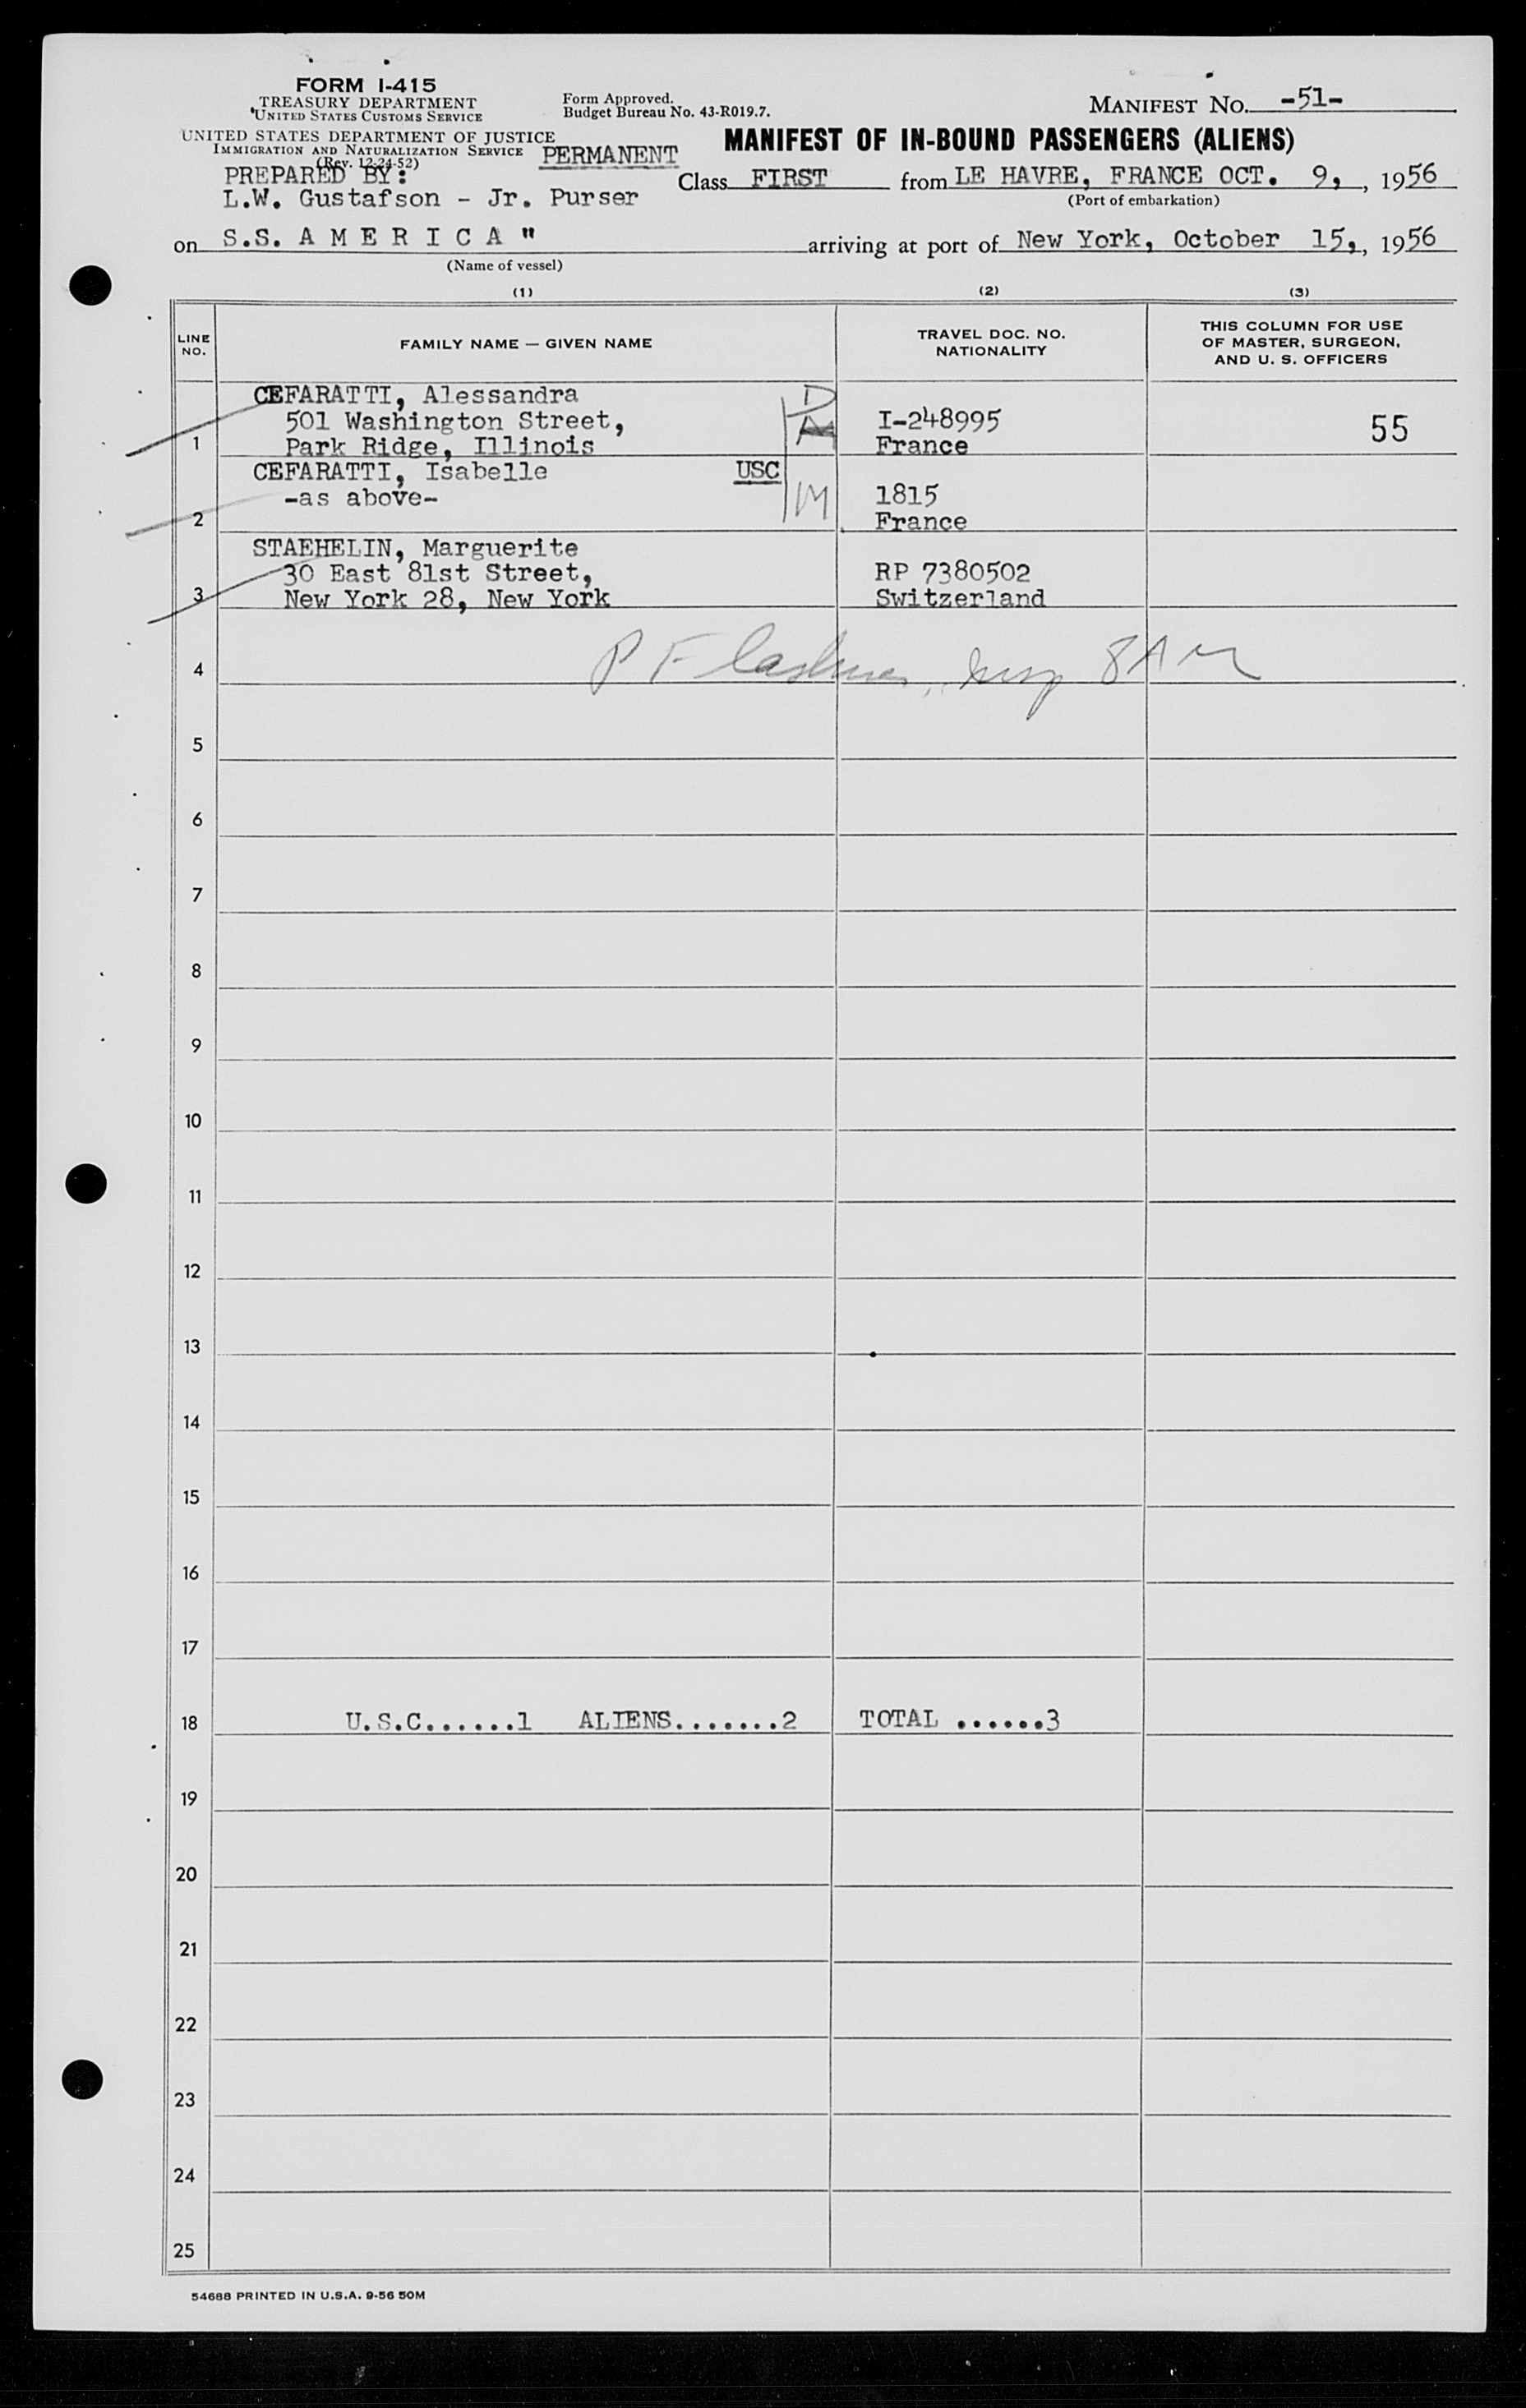 FORM I-415
TREASURY DEPARTMENT
UNITED STATES CUSTOMS SERVICE
UNITED STATES DEPARTMENT OF JUSTICE
IMMIGRATION AND NATURALIZATION SERVICE
(Rev. 12-24-52)
Form Approved.
Budget Bureau No. 43-R019.7.
MANIFEST NO. -51-
MANIFEST OF IN-BOUND PASSENGERS (ALIENS)
PERMANENT
PREPARED BY:
L.W. Gustafson - Jr. Purser
Class FIRST from LE HAVRE, FRANCE OCT. 9, , 1956
(Port of embarkation)
on S.S. A M E R I C A " arriving at port of New York, October 15, , 1956
(Name of vessel)
(1) (2) (3)
LINE NO.
FAMILY NAME — GIVEN NAME
TRAVEL DOC. NO.
NATIONALITY
THIS COLUMN FOR USE
OF MASTER, SURGEON,
AND U. S. OFFICERS
CEFARATTI, Alessandra D
501 Washington Street, I-248995 55
1 Park Ridge, Illinois France
CEFARATTI, Isabelle USC
-as above- M 1815
2 France
STAEHELIN, Marguerite
30 East 81st Street, RP 7380502
3 New York 28, New York Switzerland
4 P F 8 AM
5
6
7
8
9
10
11
12
13
14
15
16
17
18 U.S.C......1 ALIENS.......2 TOTAL ......3
19
20
21
22
23
24
25
54688 PRINTED IN U.S.A. 9-56 50M